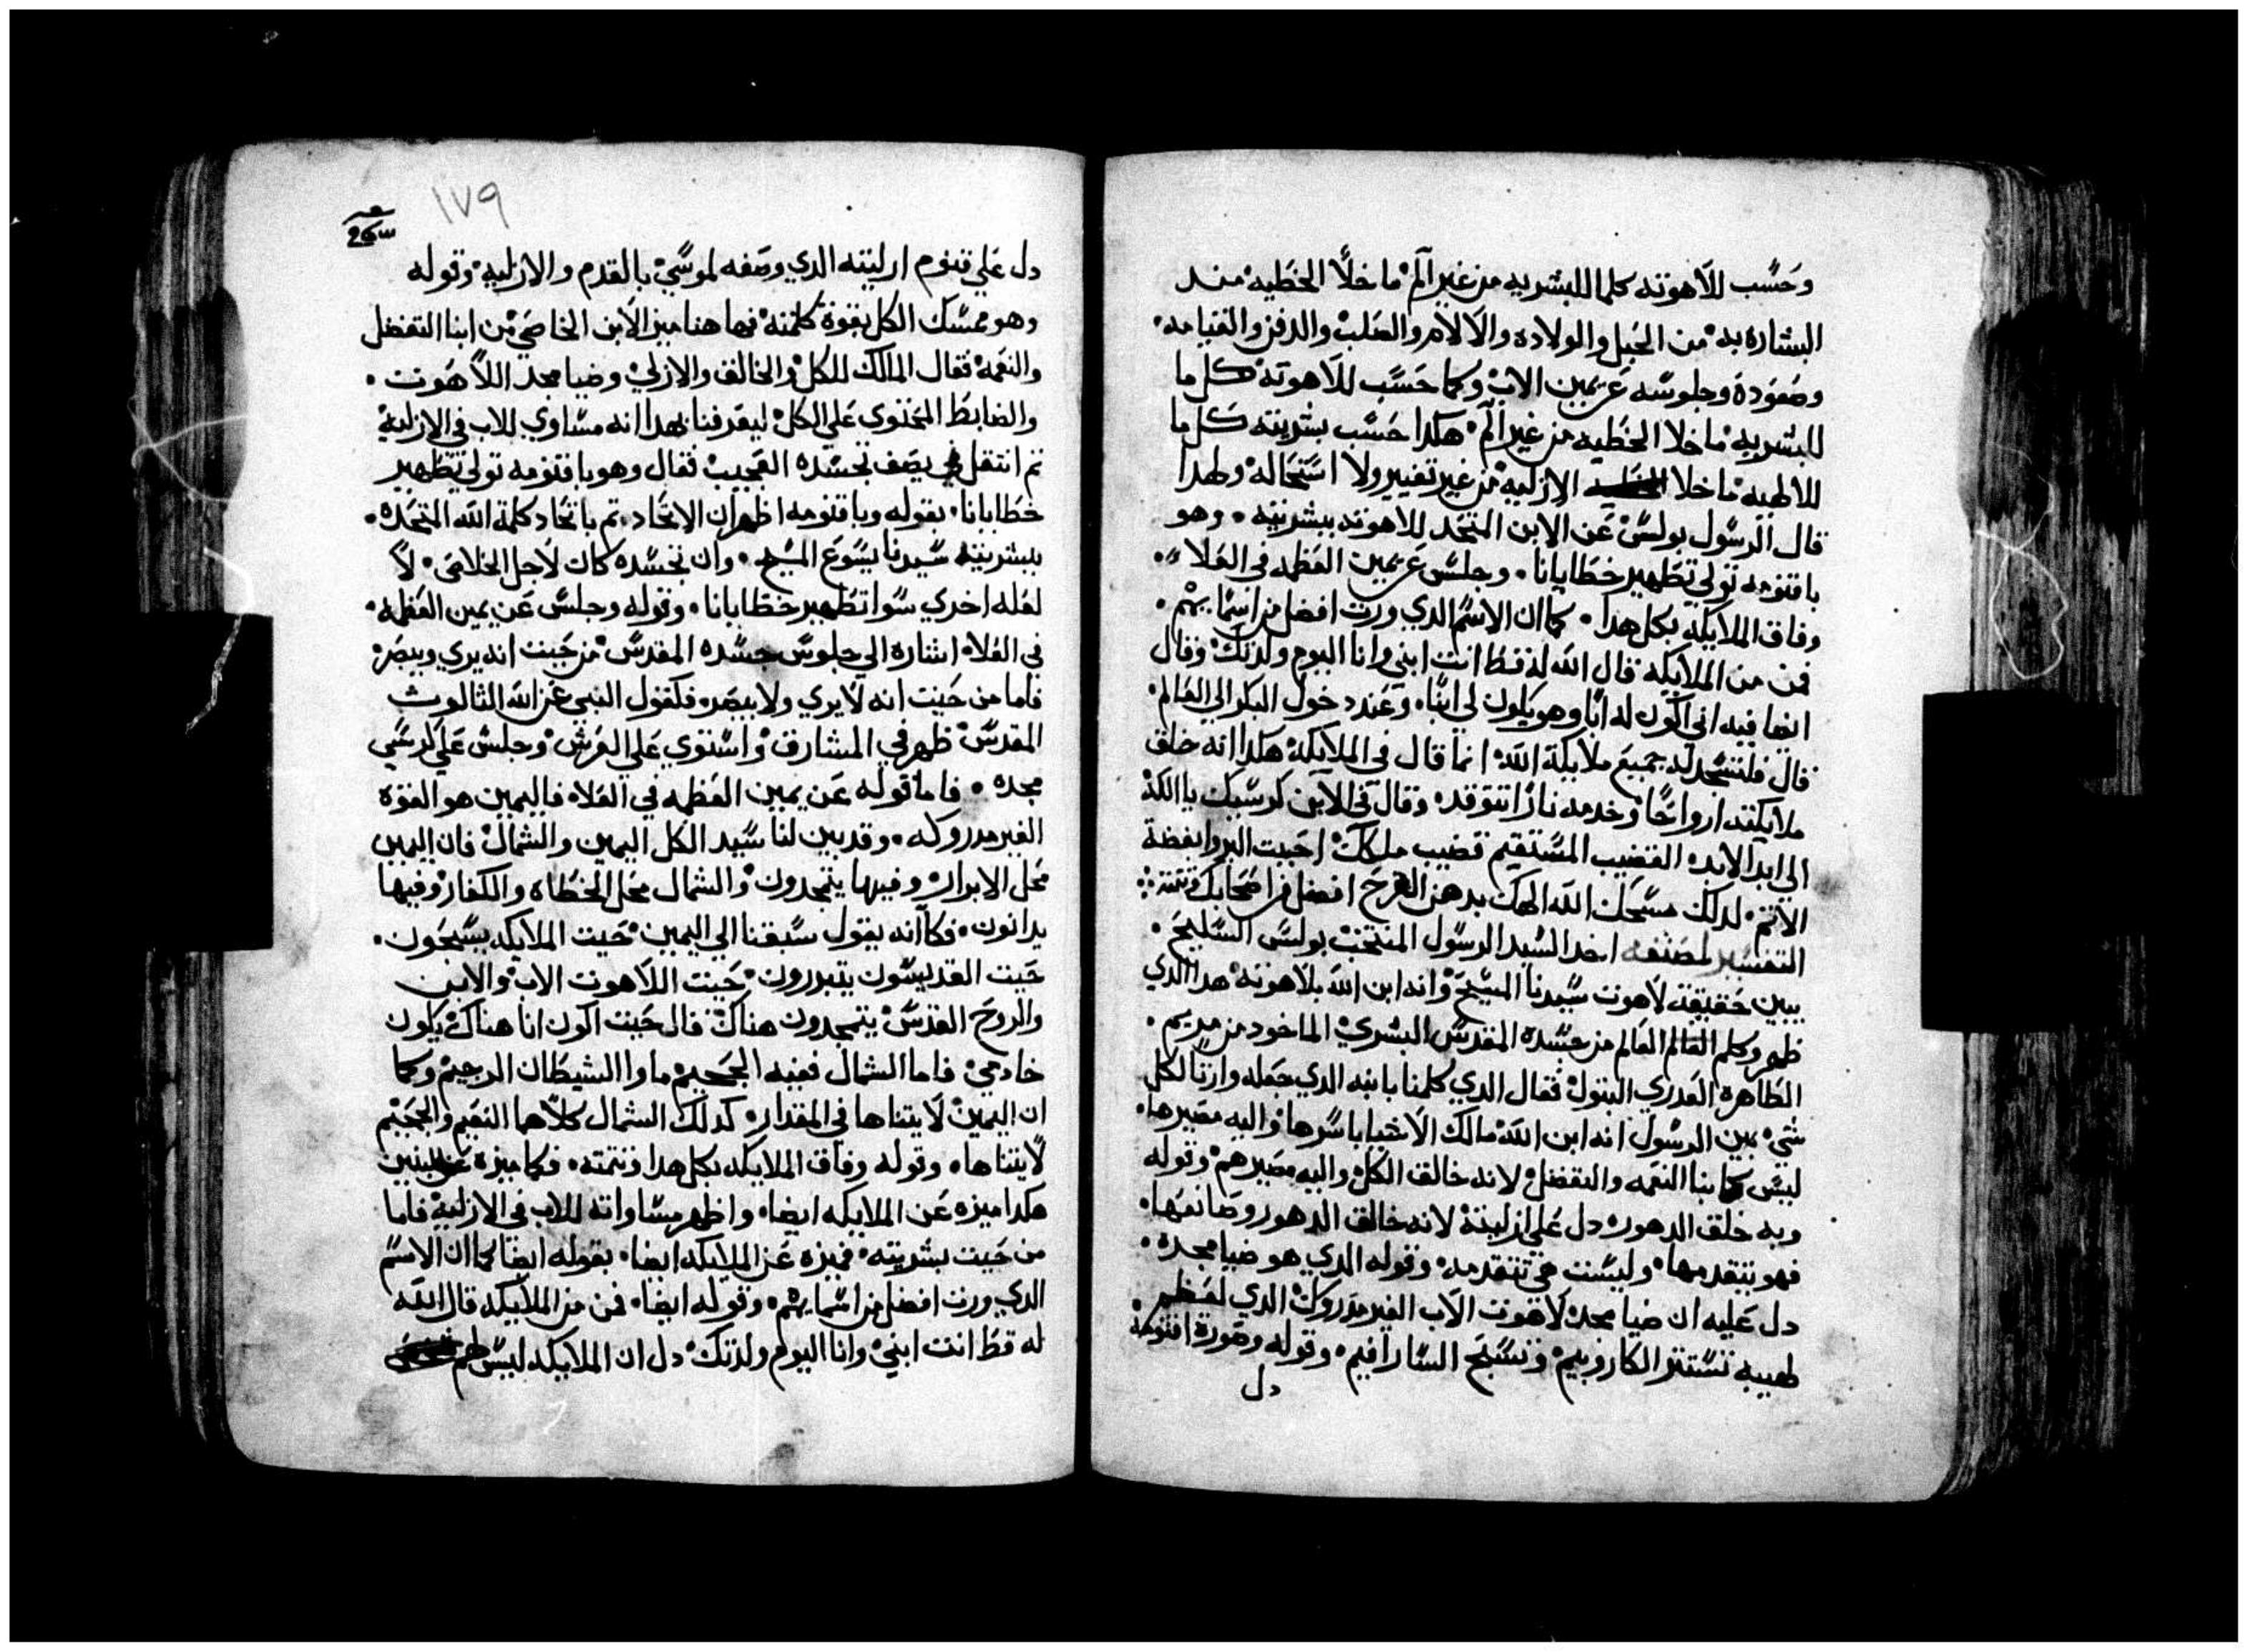 وحسب للاهوته كلما للبشريه من غير الم ما خلا الخطيه مند
البشاره به من الحبل والولاده والالام والصلب والدفن والقيامه
وصعوده وجلوسه عن يمين الاب وكما حسب للاهوته كل ما
للبشريه ما خلا الخطيه من غير الم هكدا حسب بشريته كل ما
للالهيه ما خلا الازليه من غير تغيير ولا استحاله ولهدا
قال الرسول بولس عن الابن المتحد للاهوته ببشريته وهو
باقنومه تولي تطهير خطايانا وجلس عن يمين العظمه في العلا
وفاق الملايكه بكل هدا كما ان الاسم الدي ورت افضل من اسمايهم
فمن من الملايكه قال الله له قط انت ابني وانا اليوم ولدتك وقال
ايضا فيه اني اكون له ابا وهو يكون لي ابنا وعند دخول البكر الي العالم
قال فلتسجد له جميع ملايكة الله انما قال في الملايكه هكدا انه خلق
ملايكته ارواحا وخدمه نارا تتوقد وقال في الابن كرسيك يا الله
الي ابد الابد القضيب المستقيم قضيب ملكك احببت البر وابغضة
الاتم لدلك مسحك الله الهك بدهن الفرح افضل من اصحابك تتمته
التفسير لمصنفه اخد السيد الرسول المنتخب بولس السليح
يبين حقيقة لاهوت سيدنا المسيح وانه ابن الله بلاهوته هدا الدي
ظهر وكلم العالم من جسده المقدس البشري الماخود من مريم
الطاهره العدري البتول فقال الدي كلمنا بابنه الدي جعله وارتا لكل
شي بين الرسول انه ابن الله مالك الاشيا باسرها واليه مصيرها
ليس كابنا النعمه والتفضل لانه خالق الكل واليه مصيرهم وقوله
وبه خلق الدهور دل علي ازليته لانه خالق الدهور وصانعها
فهو يتقدمها وليست هي تتقدمه وقوله الدي هو ضيا مجده
دل عليه ان ضيا مجد لاهوت الاب الغير مدروك الدي لعظم
هيبه تستتر الكاروبيم وتسبح السارافيم وقوله وصورة اقنومه
دل
١٧٩
دل علي قنوم ازليته الدي وصفه لموسي بالقدم والازليه وقوله
وهو ممسك الكل بقوة كلمته فها هنا ميز الابن الخاصي من ابنا التفضل
والنعمه فقال المالك للكل والخالق والازلي وضيا مجد اللاهوت
والضابط المحتوي علي الكل ليعرفنا بهدا انه مساوي للاب في الازليه
تم انتقل يصف تجسده العجيب فقال وهو باقنومه تولي تطهير
خطايانا بقوله وباقنومه اظهر ان الاتحاد تم باتحاد كلمة الله المتحده
ببشريته سيدنا يسوع المسيح وان تجسده كان لاجل الخلاص لا
لعله اخري سوا تطهير خطايانا وقوله وجلس عن يمين العظمه
في العلاه اشاره الي جلوس جسده المقدس من حيت انه يري ويبصر
فاما من حيت انه لا يري ولا يبصر فكقول النبي عن الله الثالوث
المقدس ظهر في المشارق واستوي علي العرش وجلس علي كرسي
مجده فاما قوله عن يمين العظمه في العلاه فاليمين هو القوة
الغير مدروكه وقد بين لنا سيد الكل اليمين والشمال فان اليمين
محل الابرار وفيها يتمجدون والشمال محل الخطاه والكفار وفيها
يدانون فكانه يقول سبقنا الي اليمين حيت الملايكه يسبحون
حيت القديسون يتبررون حيت اللاهوت الاب والابن
والروح القدس يتمجدون هناك قال حيت اكون انا هناك يكون
خادمي فاما الشمال ففيه الجحيم ماوا الشيطان الرجيم وكما
ان اليمين لا يتناها في المقدار كدلك الشمال كلاهما النعيم والجحيم
لا يتناها وقوله وفاق الملايكه بكل هدا وتتمته فكما ميزه عن البنين
هكدا ميزه عن الملايكه ايضا واظهر مساواته للاب في الازليه فاما
من حيت بشريته فميزه عن الملايكه ايضا بقوله ايضا كما ان الاسم
الدي ورت افضل من اسمايهم وقوله ايضا فمن من الملايكه قال الله
له قط انت ابني وانا اليوم ولدتك دل ان الملايكه ليس لهم